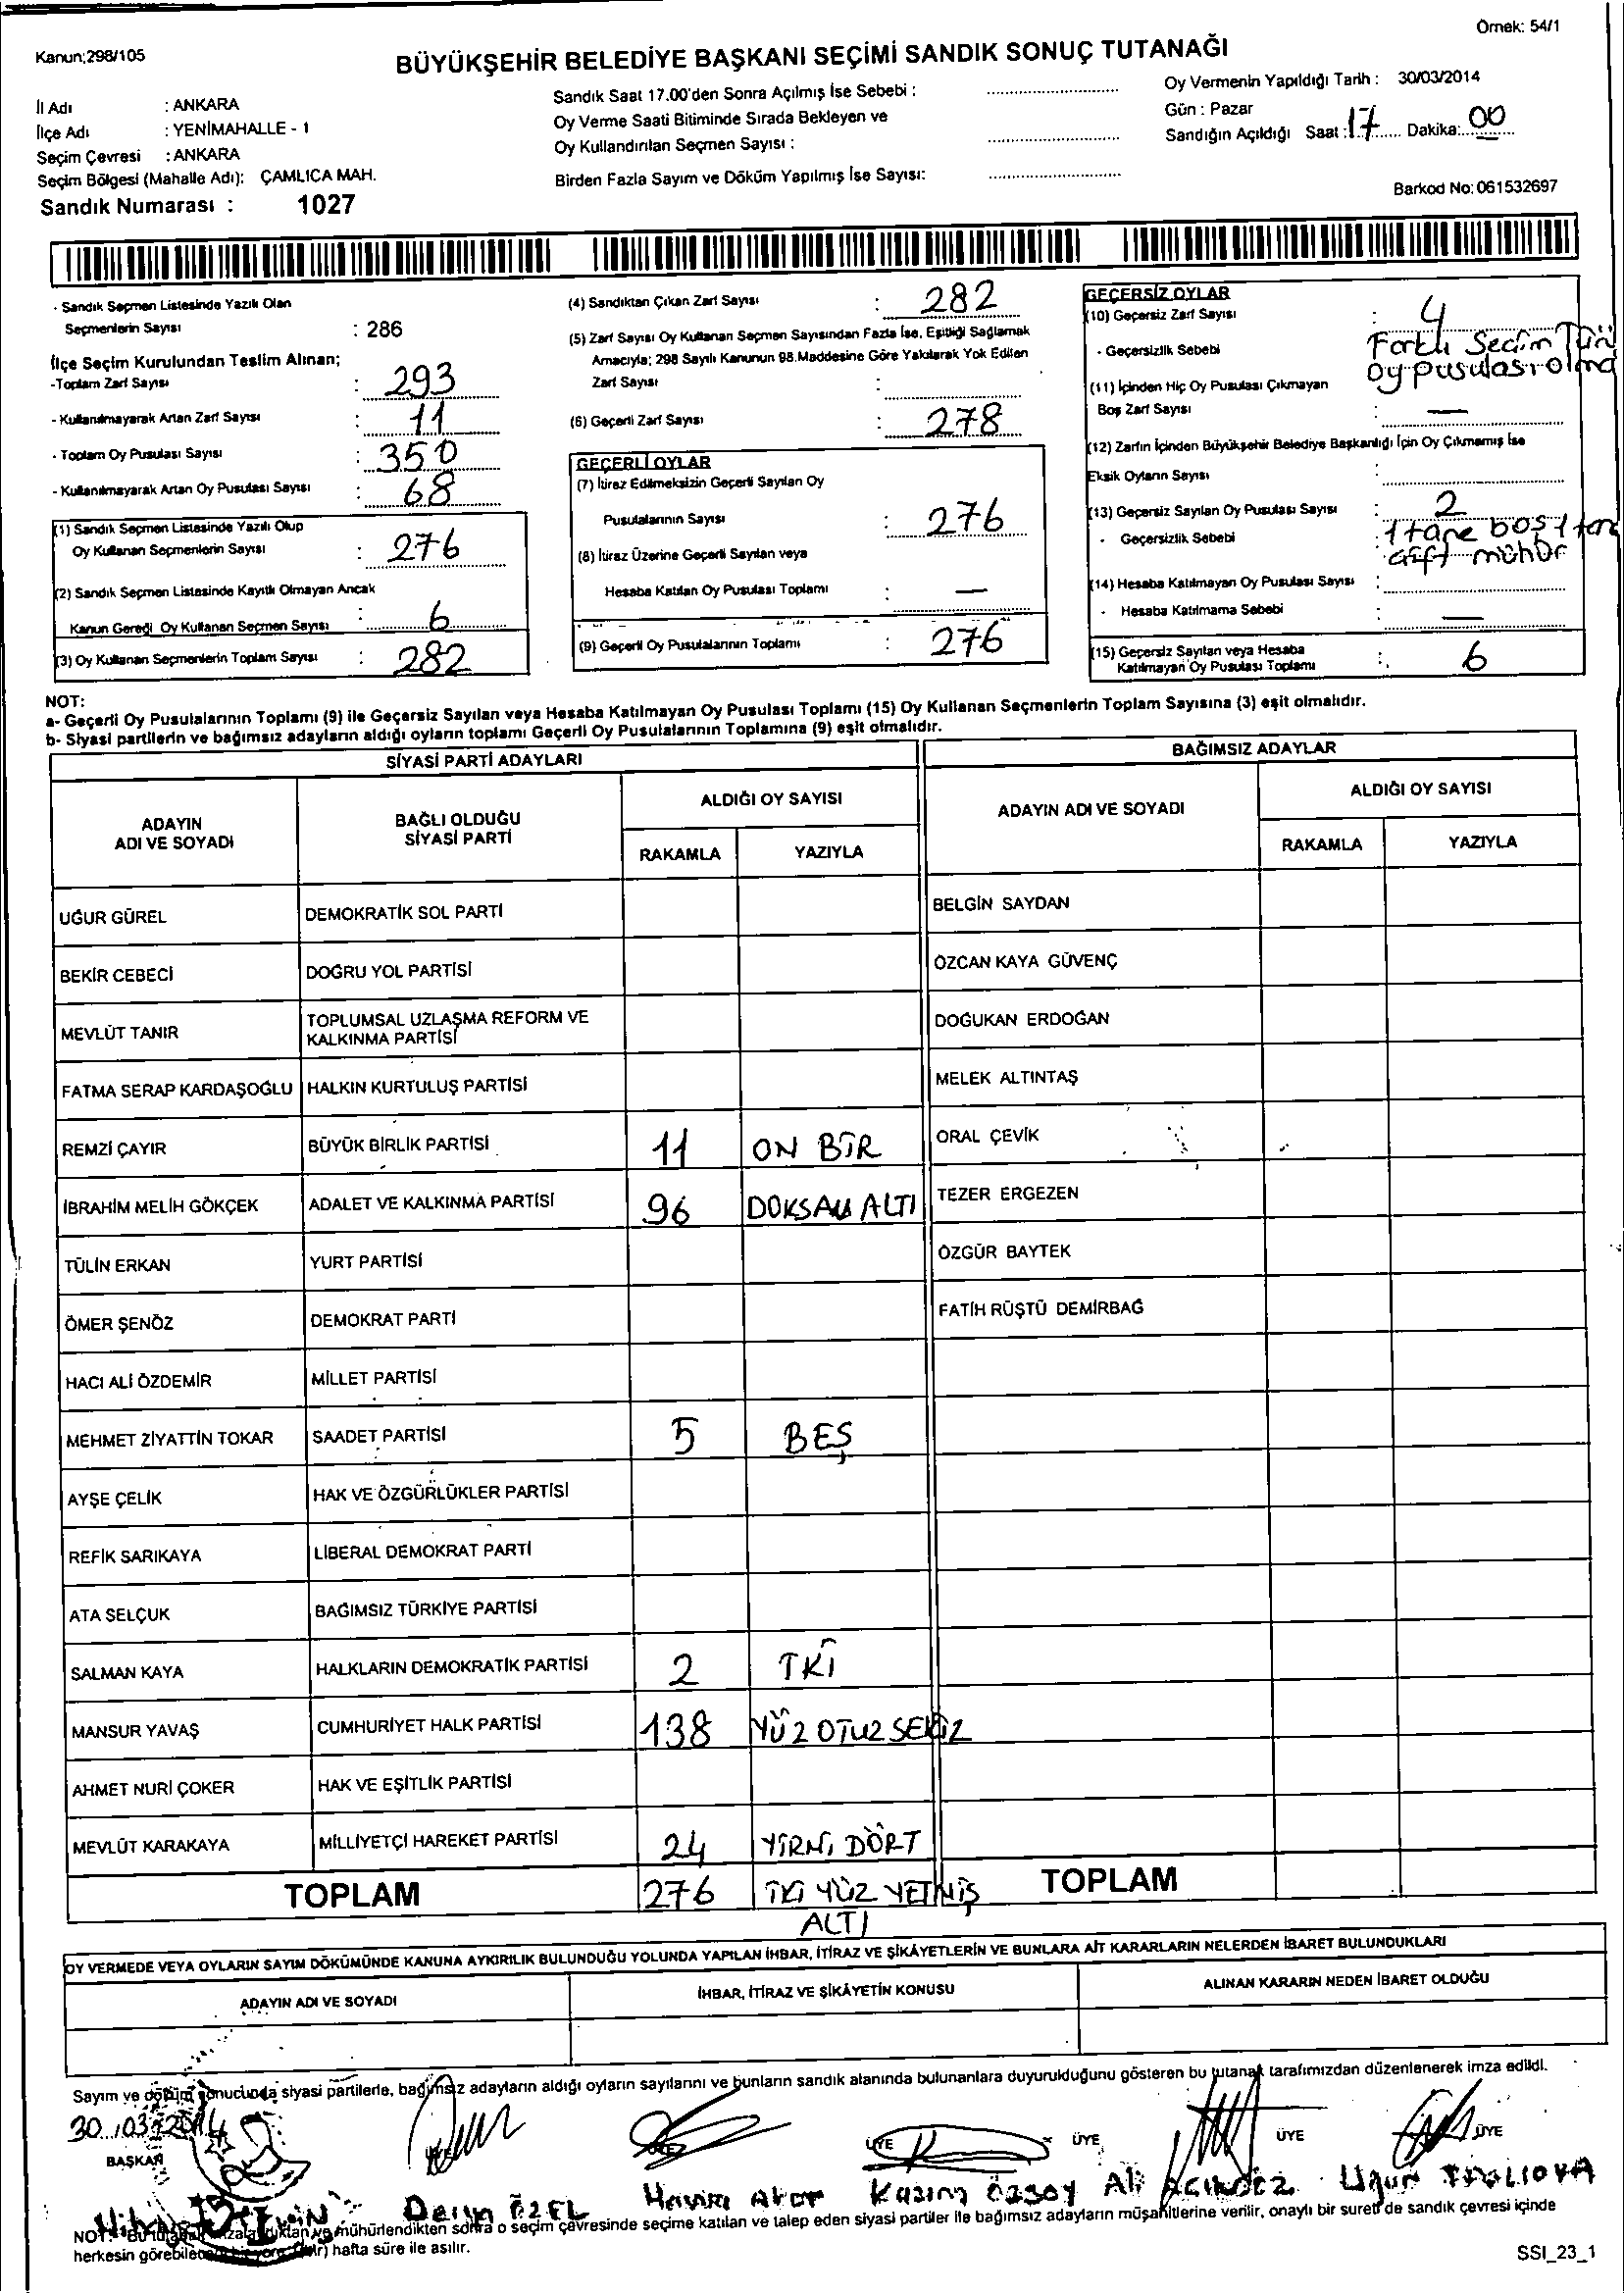 Örnek: 54/1
Kanun;298/105
BÜYÜKŞEHİR BELEDİYE BAŞKANI SEÇİMİ SANDIK SONUÇ TUTANAĞI
İl Adı : ANKARA
İlçe Adı : YENİMAHALLE - 1
Seçim Çevresi : ANKARA
Seçim Bölgesi (Mahalle Adı): ÇAMLICA MAH.
Sandık Numarası : 1027
Sandık Saat 17.00'den Sonra Açılmış İse Sebebi :
Oy Verme Saati Bitiminde Sırada Bekleyen ve
Oy Kullandırılan Seçmen Sayısı :
Birden Fazla Sayım ve Döküm Yapılmış İse Sayısı:
Oy Vermenin Yapıldığı Tarih : 30/03/2014
Gün : Pazar
Sandığın Açıldığı Saat : 17 Dakika: 00
Barkod No: 061532697
- Sandık Seçmen Listesinde Yazılı Olan
Seçmenlerin Sayısı : 286
İlçe Seçim Kurulundan Teslim Alınan;
-Toplam Zarf Sayısı : 293
- Kullanılmayarak Artan Zarf Sayısı : 11
- Toplam Oy Pusulası Sayısı : 350
- Kullanılmayarak Artan Oy Pusulası Sayısı : 68
(1) Sandık Seçmen Listesinde Yazılı Olup
Oy Kullanan Seçmenlerin Sayısı : 276
(2) Sandık Seçmen Listesinde Kayıtlı Olmayan Ancak
Kanun Gereği Oy Kullanan Seçmen Sayısı : 6
(3) Oy Kullanan Seçmenlerin Toplam Sayısı : 282
(4) Sandıktan Çıkan Zarf Sayısı : 282
(5) Zarf Sayısı Oy Kullanan Seçmen Sayısından Fazla İse, Eşitliği Sağlamak
Amacıyla; 298 Sayılı Kanunun 98.Maddesine Göre Yakılarak Yok Edilen
Zarf Sayısı :
(6) Geçerli Zarf Sayısı : 278
GEÇERLİ OYLAR
(7) İtiraz Edilmeksizin Geçerli Sayılan Oy
Pusulalarının Sayısı : 276
(8) İtiraz Üzerine Geçerli Sayılan veya
Hesaba Katılan Oy Pusulası Toplamı : —
(9) Geçerli Oy Pusulalarının Toplamı : 276
GEÇERSİZ OYLAR
(10) Geçersiz Zarf Sayısı : 4
- Geçersizlik Sebebi Farklı Seçim Türü
oy pusulası olma
(11) İçinden Hiç Oy Pusulası Çıkmayan
Boş Zarf Sayısı : —
(12) Zarfın İçinden Büyükşehir Belediye Başkanlığı İçin Oy Çıkmamış İse
Eksik Oyların Sayısı :
(13) Geçersiz Sayılan Oy Pusulası Sayısı : 2
- Geçersizlik Sebebi : 1 tane boş 1 tane
çift mühür
(14) Hesaba Katılmayan Oy Pusulası Sayısı :
- Hesaba Katılmama Sebebi : —
(15) Geçersiz Sayılan veya Hesaba
Katılmayan Oy Pusulası Toplamı : 6
NOT:
a- Geçerli Oy Pusulalarının Toplamı (9) ile Geçersiz Sayılan veya Hesaba Katılmayan Oy Pusulası Toplamı (15) Oy Kullanan Seçmenlerin Toplam Sayısına (3) eşit olmalıdır.
b- Siyasi partilerin ve bağımsız adayların aldığı oyların toplamı Geçerli Oy Pusulalarının Toplamına (9) eşit olmalıdır.
SİYASİ PARTİ ADAYLARI
ADAYIN
ADI VE SOYADI
BAĞLI OLDUĞU
SİYASİ PARTİ
ALDIĞI OY SAYISI
RAKAMLA YAZIYLA
UĞUR GÜREL DEMOKRATİK SOL PARTİ
BEKİR CEBECİ DOĞRU YOL PARTİSİ
MEVLÜT TANIR TOPLUMSAL UZLAŞMA REFORM VE
KALKINMA PARTİSİ
FATMA SERAP KARDAŞOĞLU HALKIN KURTULUŞ PARTİSİ
REMZİ ÇAYIR BÜYÜK BİRLİK PARTİSİ 11 ON BİR
İBRAHİM MELİH GÖKÇEK ADALET VE KALKINMA PARTİSİ 96 DOKSAN ALTI
TÜLİN ERKAN YURT PARTİSİ
ÖMER ŞENÖZ DEMOKRAT PARTİ
HACI ALİ ÖZDEMİR MİLLET PARTİSİ
MEHMET ZİYATTİN TOKAR SAADET PARTİSİ 5 BEŞ
AYŞE ÇELİK HAK VE ÖZGÜRLÜKLER PARTİSİ
REFİK SARIKAYA LİBERAL DEMOKRAT PARTİ
ATA SELÇUK BAĞIMSIZ TÜRKİYE PARTİSİ
SALMAN KAYA HALKLARIN DEMOKRATİK PARTİSİ 2 İKİ
MANSUR YAVAŞ CUMHURİYET HALK PARTİSİ 138 YÜZ OTUZ SEKİZ
AHMET NURİ ÇOKER HAK VE EŞİTLİK PARTİSİ
MEVLÜT KARAKAYA MİLLİYETÇİ HAREKET PARTİSİ 24 YİRMİ DÖRT
TOPLAM 276 İKİ YÜZ YETMİŞ
ALTI
BAĞIMSIZ ADAYLAR
ADAYIN ADI VE SOYADI
ALDIĞI OY SAYISI
RAKAMLA YAZIYLA
BELGİN SAYDAN
ÖZCAN KAYA GÜVENÇ
DOĞUKAN ERDOĞAN
MELEK ALTINTAŞ
ORAL ÇEVİK
TEZER ERGEZEN
ÖZGÜR BAYTEK
FATİH RÜŞTÜ DEMİRBAĞ
TOPLAM
OY VERMEDE VEYA OYLARIN SAYIM DÖKÜMÜNDE KANUNA AYKIRILIK BULUNDUĞU YOLUNDA YAPILAN İHBAR, İTİRAZ VE ŞİKÂYETLERİN VE BUNLARA AİT KARARLARIN NELERDEN İBARET BULUNDUKLARI
ADAYIN ADI VE SOYADI İHBAR, İTİRAZ VE ŞİKÂYETİN KONUSU ALINAN KARARIN NEDEN İBARET OLDUĞU
Sayım ve döküm sonucunda siyasi partilerle, bağımsız adayların aldığı oyların sayılarını ve bunların sandık alanında bulunanlara duyurulduğunu gösteren bu tutanak tarafımızdan düzenlenerek imza edildi.
30/03/2014
BAŞKAN ÜYE ÜYE ÜYE ÜYE
Derya ÖZEL Kazım Özsoy Ali Uğur
NOT: Bu tutanak imzalandıktan ve mühürlendikten sonra o seçim çevresinde seçime katılan ve talep eden siyasi partiler ile bağımsız adayların müşahitlerine verilir, onaylı bir sureti de sandık çevresi içinde
herkesin görebileceği bir yere hafta süre ile asılır.
SSI_23_1